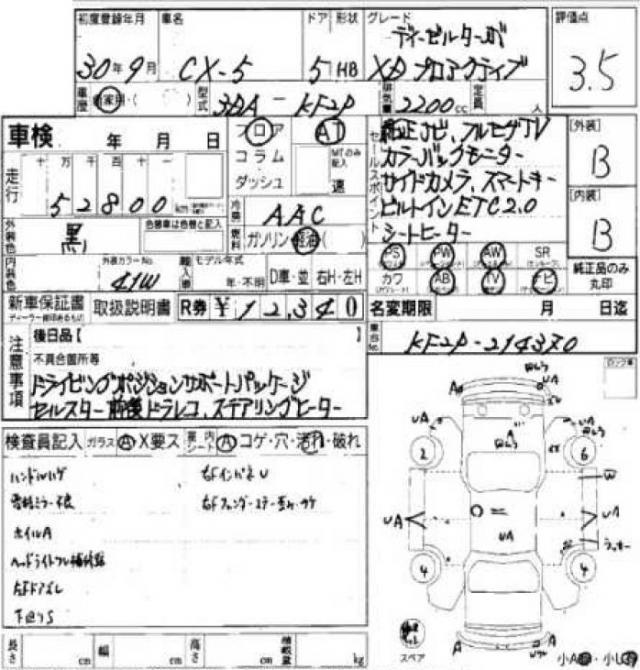 初度登録年月 車名 ドア 形状 グレード 評価点
ディーゼルターボ
30年9月 CX-5 5 HB XD プロアクティブ 3.5
車歴 自家用・( ) 型式 3DA-KF2P 排気量 2200cc 定員 人
車検 年 月 日 フロア AT
コラム MTのみ記入
ダッシュ 速
走行 十 万 千 百 十 一
52800
冷房 AAC
セールスポイント
純正ナビ、フルセグTV
カラーバックモニター
サイドカメラ、スマートキー
ビルトインETC2.0
シートヒーター
[外装]
B
[内装]
B
外装色 黒 色替車は色替と記入 燃料 ガソリン・軽油( )
PS PW AW SR
カワ AB TV ナビ
純正品のみ丸印
内装色 外装カラーNo. 41W 輸入車 モデル年式 年・不明 D車・並 右H・左H
新車保証書 取扱説明書 R券 ¥12,340
ディーラー捺印あるもの
名変期限 月 日迄
車台No. KF2P-214370
注意事項
後日品【 】
不具合箇所等
ドライビングポジションサポートパッケージ
セルスター前後ドラレコ、ステアリングヒーター
ロック車
検査員記入 ガラス A・X要ス 内シート A コゲ・穴・汚れ・破れ
ハンドルハゲ 右FインパネU
ホイルA
下回りS
A
UA
2 6
W
UA UA
4 4
スペア
A
長さ cm 幅 cm 高さ cm 積載量 kg
小A 小U